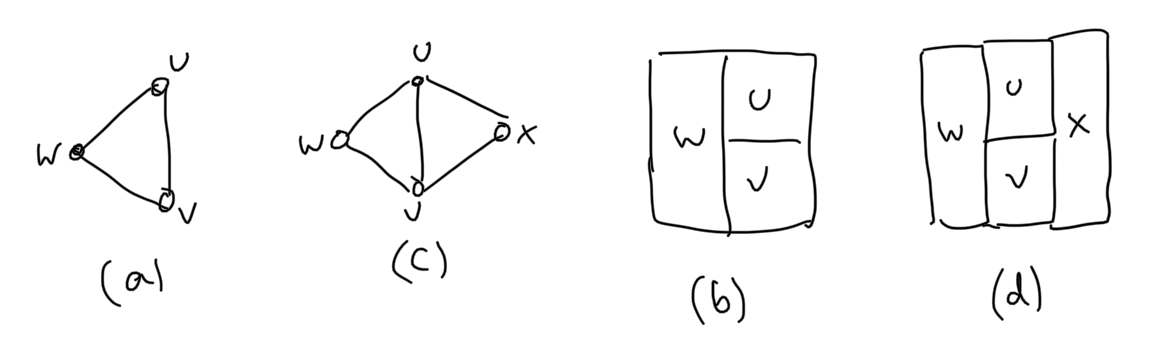 U
W
V
(a)
U
W
X
V
(c)
W
U
V
(b)
W
U
X
V
(d)